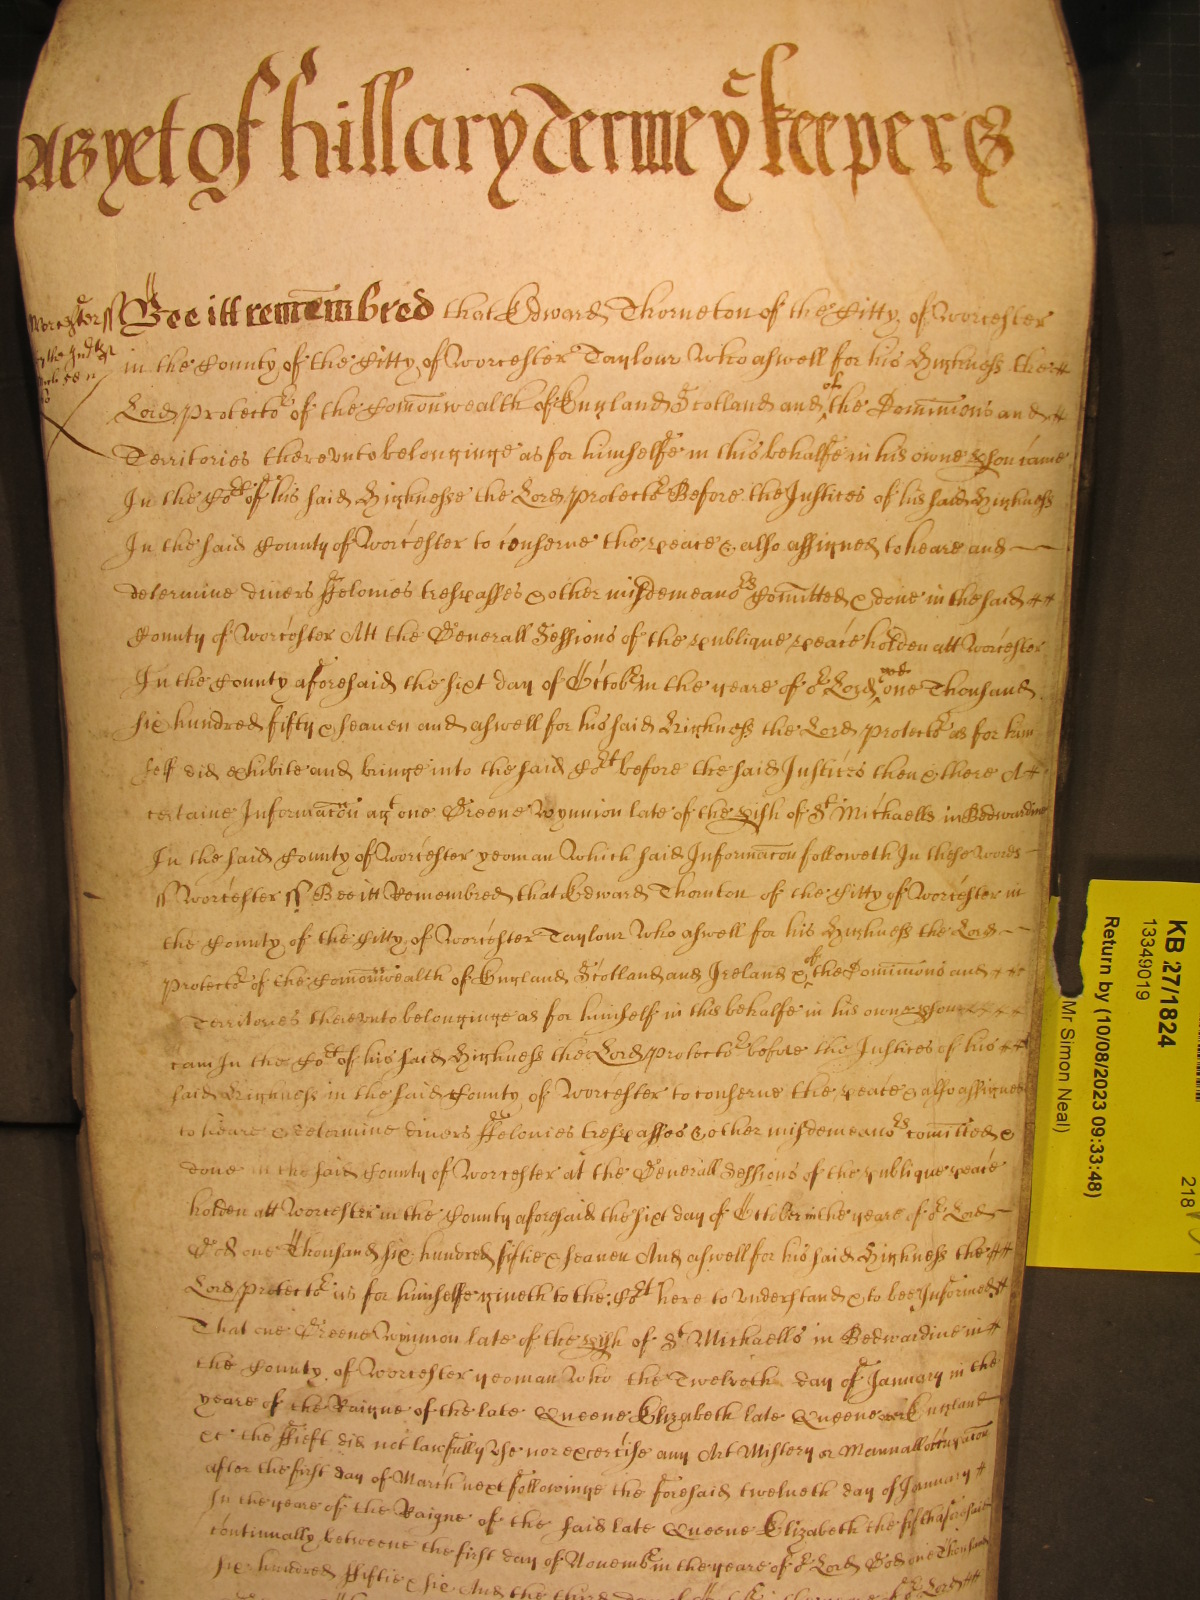 As yet of Hillary Terme ye keepers
Worcester ss Bee itt remembred that Edward Thorneton of the Citty of Worcester
in the County of the Citty of Worcester Taylour Who aswell for his Highness the
Lord Protector of the Comonwealth of England Scotland and of the Dominions and
Territories thereunto belonginge as for himselfe in this behalfe in his owne pson came
In the Cort of his said Highnesse the Lord Protector Before the Justices of his said Highness
In the said County of Worcester to conserve the peace & also assigned to heare and
determine divers ffelonies trespasses & other misdemeanors Comitted & done in the said
County of Worcester Att the Generall Sessions of the publique peace holden att Worcester
In the County aforesaid the sixt day of October in the yeare of or Lord one Thousand
six hundred fifty & seaven and aswell for his said Highness the Lord Protector as for him
self did exhibite and bringe into the said Cort before the said Justices then & there A
certaine Informacon agt one Greene Wynnion late of the pish of St Michaells in Bedwardine
In the said County of Worcester yeoman Which said Informacon followeth In these words
ss Worcester ss Bee itt Remembred that Edward Thornton of the Citty of Worcester in
the County of the Citty of Worcester Taylour Who aswell for his Highness the Lord
Protector of the Comonwealth of England Scotland and Ireland & of the Dominions and
Territories thereunto belonginge as for himself in this behalfe in his owne pson
cam In the Cort of his said Highness the Lord Protector before the Justices of his
said Highness in the said County of Worcester to conserve the peace & also assigned
to heare & determine divers ffelonies trespasses & other misdemeanors comitted &
done in the said County of Worcester at the Generall Sessions of the publique peace
holden att Worcester in the County aforesaid the sixt day of October in the yeare of or Lord
God one Thousand six hundred fiftie & seaven And aswell for his said Highness the
Lord Protector as for himselfe giveth to the Cort here to understand & to bee Informed
That one Greene Wynnion late of the pish of St Michaells in Bedwardine in
the County of Worcester yeoman Who the Twelveth day of January in the
yeare of the Raigne of the late Queene Elizabeth late Queene over England
&c the ffieft did not lawfully Use nor exercise any Art Mistery or Mannall occupacon
after the first day of March next followinge the foresaid twelveth day of January
In the yeare of the Raigne of the said late Queene Elizabeth the fift aforesaid
continually betweene the first day of November in the yeare of or Lord God one Thousand
six hundred ffiftie & six And the third day of
KB 27/1824
13349019
Return by (10/08/2023 09:33:48)
Mr Simon Neal)
218